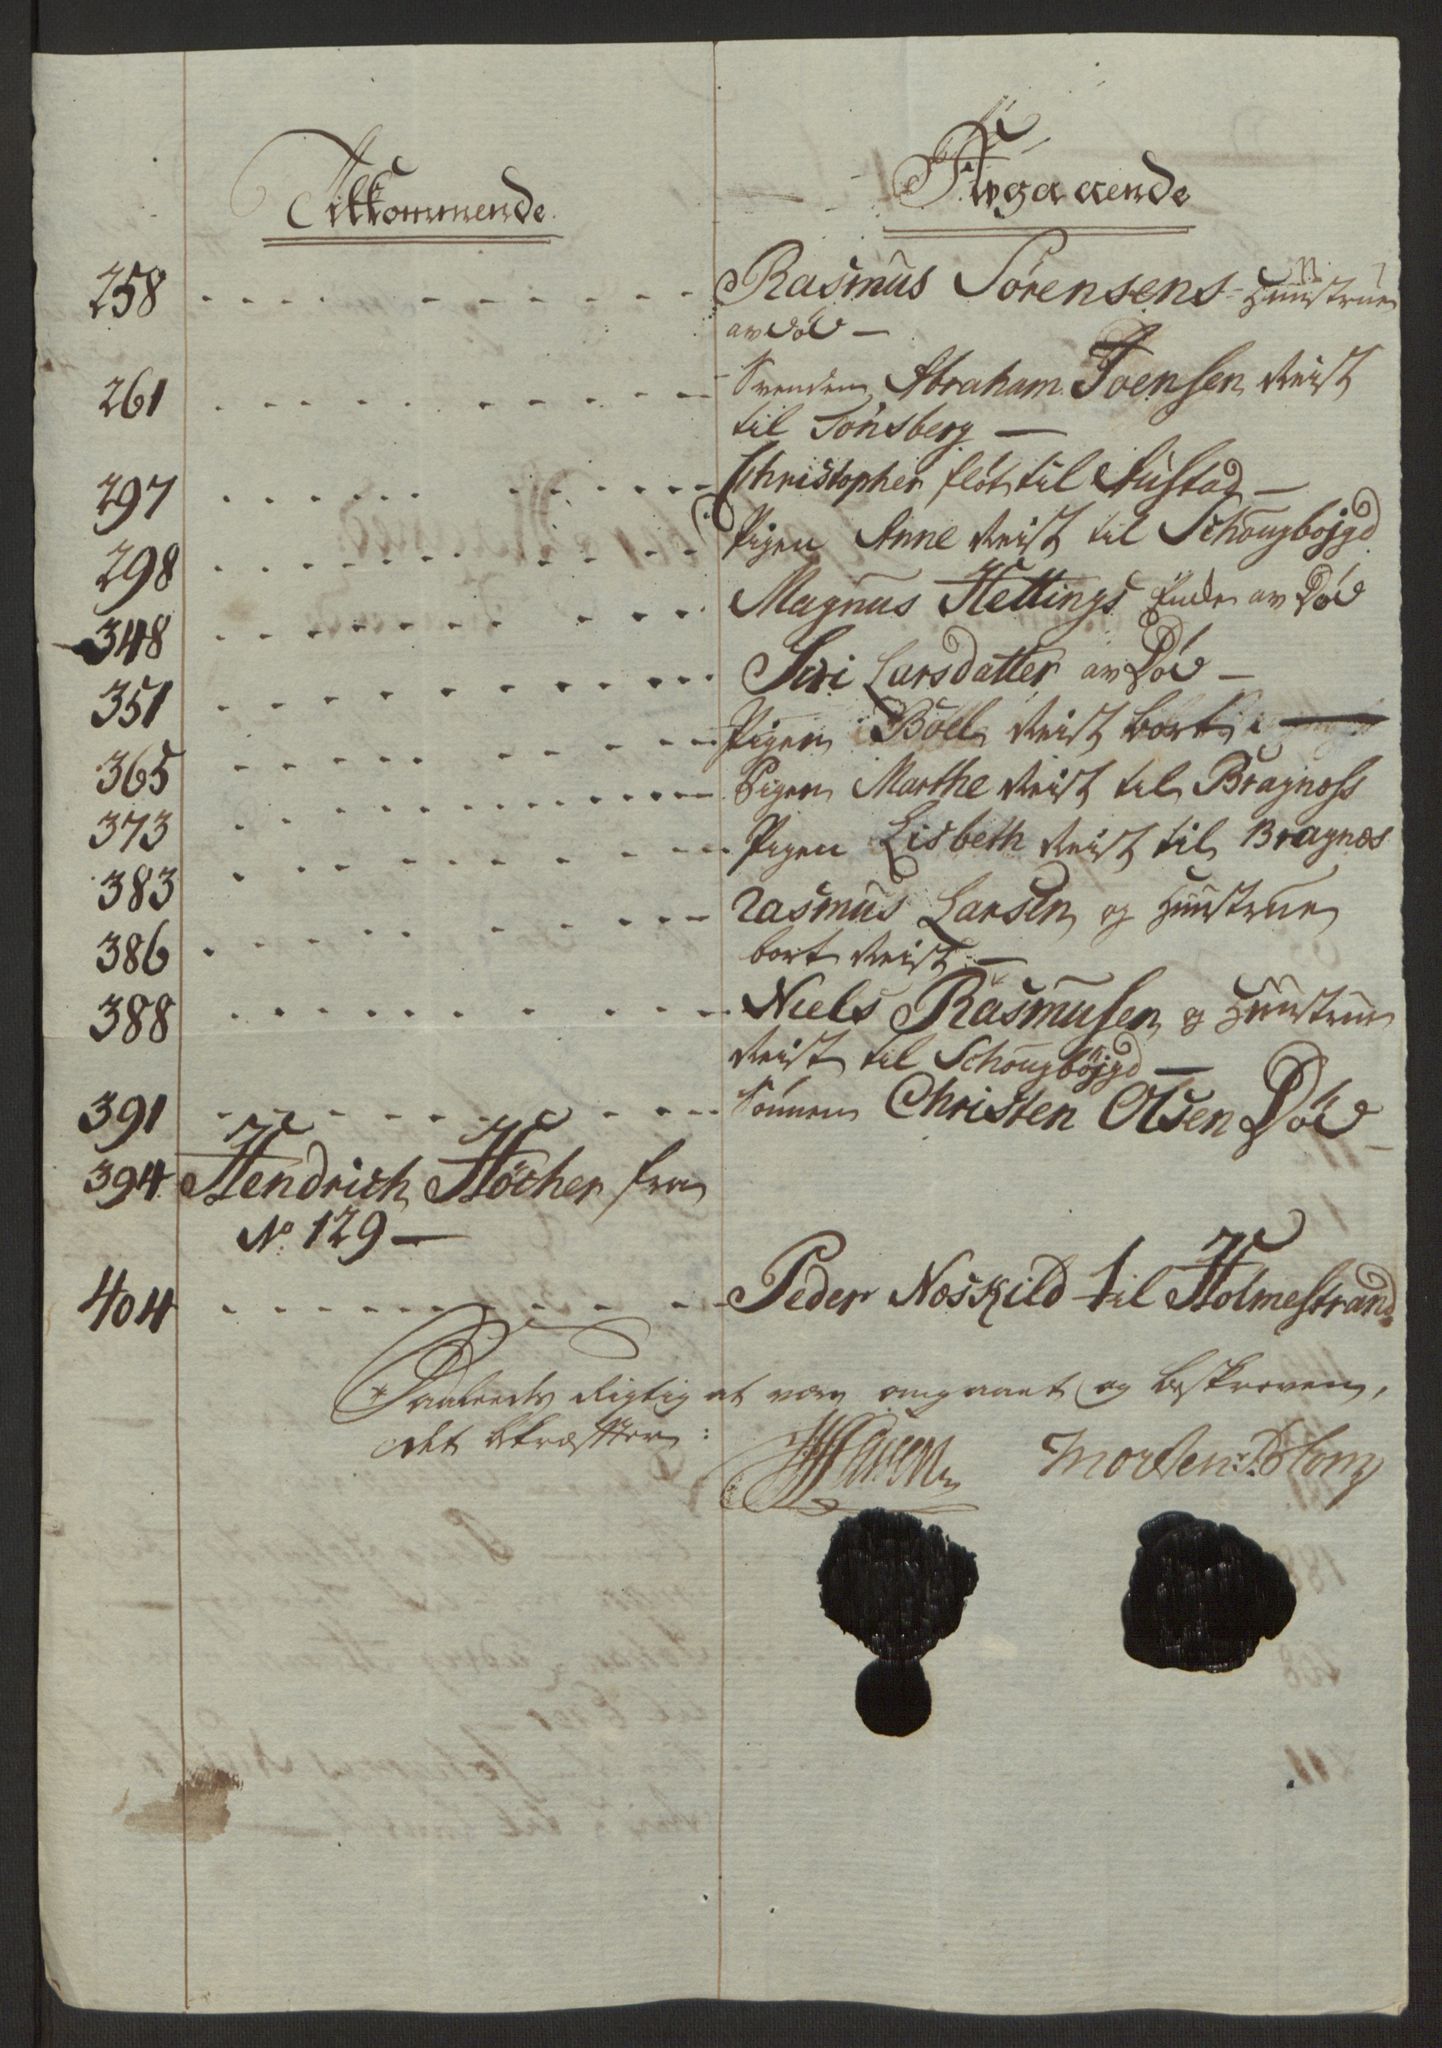 Tilkommende
Avgaaende
258 Rasmus Sörensens Huustrue
avdöd —
261 Svenden Abraham Joensen Reist
til Tönsberg —
297 Christopher flöt til Austad —
298 Pigen Anne Reist til Schougböjgd
348 Magnus Hettings Enke av Död
351 Siri Larsdatter av Död —
365 Pigen Boel Reist bort
373 Pigen Marthe Reist til Bragness
383 Pigen Lisbeth Reist til Bragnæs
386 Rasmus Larsen og Huustrue
bort Reist —
388 Niels Rasmusen og Huustrue
Reist til Schougböjgd —
391 Sönnen Christen Olsen Död —
394 Hendrich Höcher fra
No. 129 —
404 Peder Noskild til Holmestrand
Saaledes Rigtig at være omgaaet og beskreven,
det bekræfter:
Morten Blom